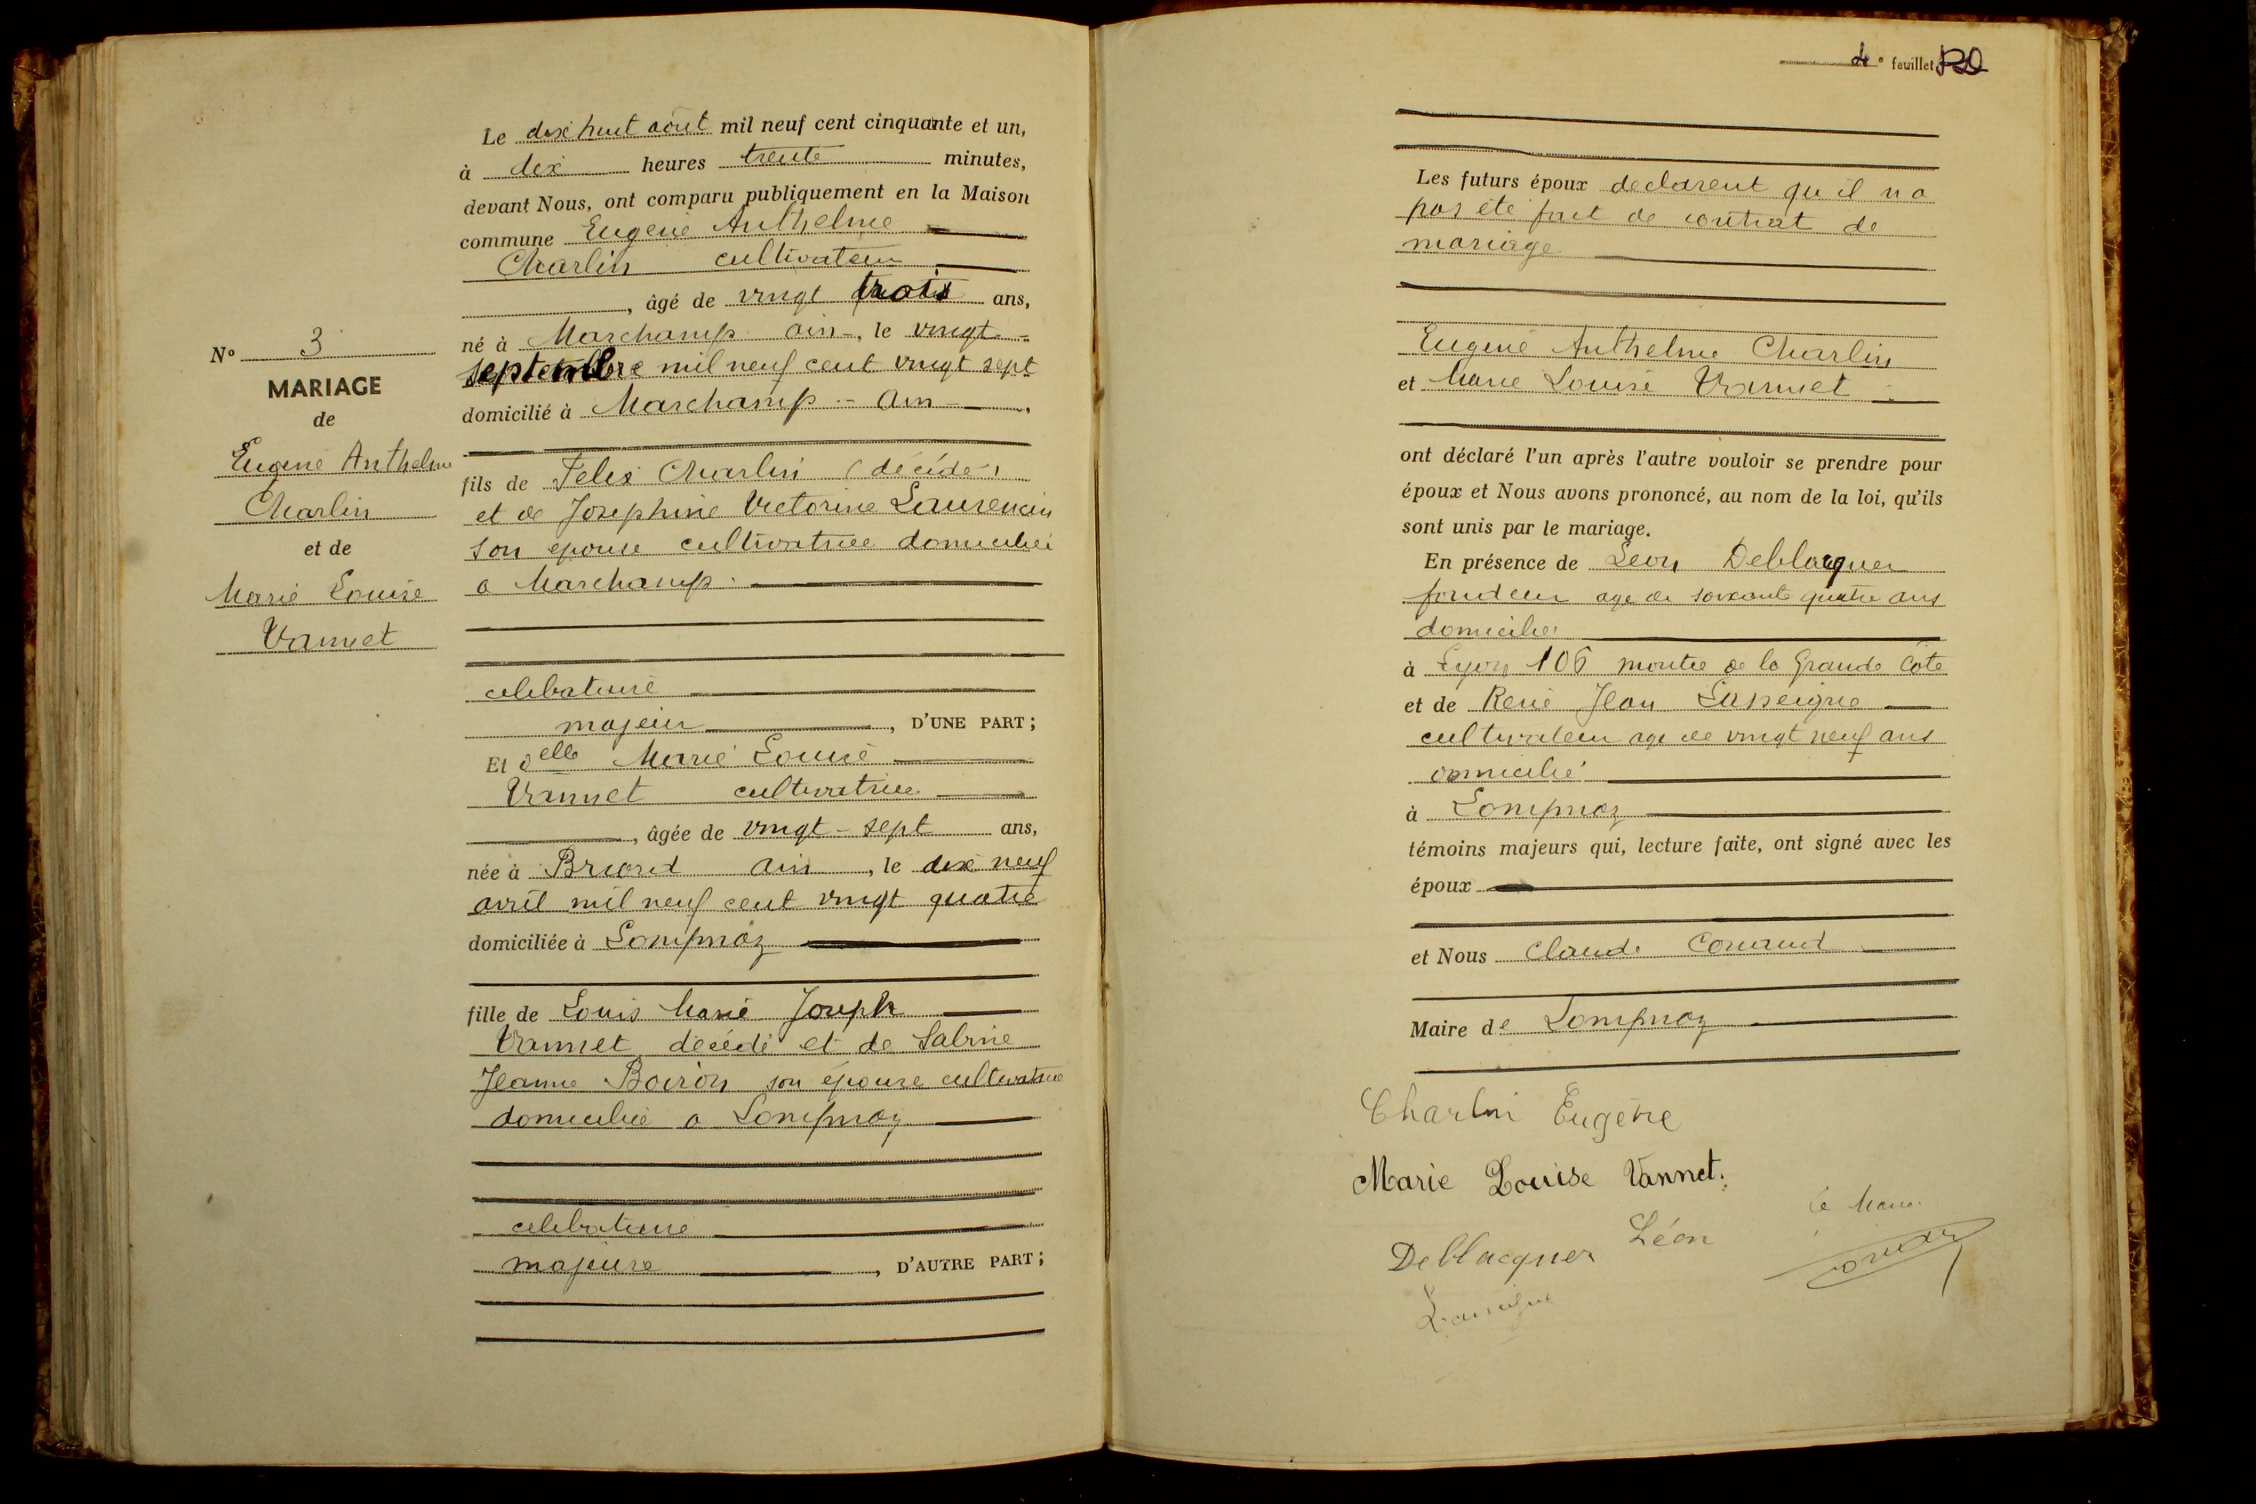 Le dix huit août mil neuf cent cinquante et un,
à dix heures trente minutes,
devant Nous, ont comparu publiquement en la Maison
commune Eugene Anthelme
Charlin cultivateur
, âgé de vingt trois ans,
né à Marchamp - ain -, le vingt -
septembre mil neuf cent vingt sept
domicilié à Marchamp - Ain - .
fils de Felix Charlin (décédé)
et de Josephine Victorine Laurencin
son epouse cultivatrice domiciliée
a Marchamp.
celibataire
majeur , D'UNE PART ;
Et Delle Marie Louise
Vannet cultivatrice
, âgée de vingt - sept ans,
née à Briord ain , le dix neuf
avril mil neuf cent vingt quatre
domiciliée à Lompnaz
fille de Louis Marie Joseph
Vannet décédé et de Sabine
Jeanne Boiron son épouse cultivatrice
domiciliée a Lompnaz
celibataire
majeure , D'AUTRE PART ;
N° 3
MARIAGE
de
Eugene Anthelme
Charlin
et de
Marie Louise
Vannet
4e feuillet
Les futurs époux declarent qu'il n a
pas été fait de contrat de
mariage
Eugene Anthelme Charlin
et Marie Louise Vannet
ont déclaré l'un après l'autre vouloir se prendre pour
époux et Nous avons prononcé, au nom de la loi, qu'ils
sont unis par le mariage.
En présence de Leon Deblacquer
fondeur age de soixante quatre ans
domicilié
à Lyon 106 montée de la Grande Côte
et de René Jean Lapeigne
cultivateur age de vingt neuf ans
domicilié
à Lompnaz
témoins majeurs qui, lecture faite, ont signé avec les
époux
et Nous Claude Conand
Maire de Lompnaz
Charlin Eugène
Marie Louise Vannet.
Le Maire
Deblacquer Léon